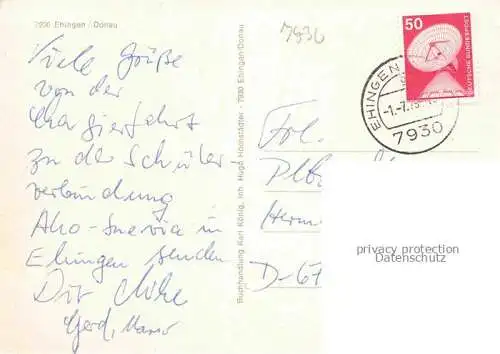 7930 Ehingen / Donau
7930
Viele Grüße
von der
Chargierfahrt
zu der Schüler-
verbindung
Aho-Suevia in
Ehingen senden
Dir
Gerd,
Buchhandlung Karl König, Inh. Hugo Höchstädter - 7930 Ehingen/Donau
50
DEUTSCHE BUNDESPOST
EHINGEN
7930
Frl.
D-67
privacy protection
Datenschutz